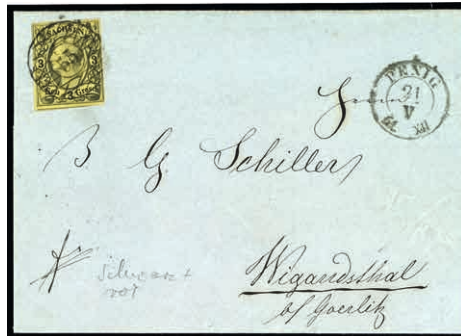 3
3
PENIG
21
V
61 XII
Herrn
B G Schiller
Wigandsthal
b/ Goerlitz
Schwarz +
rot